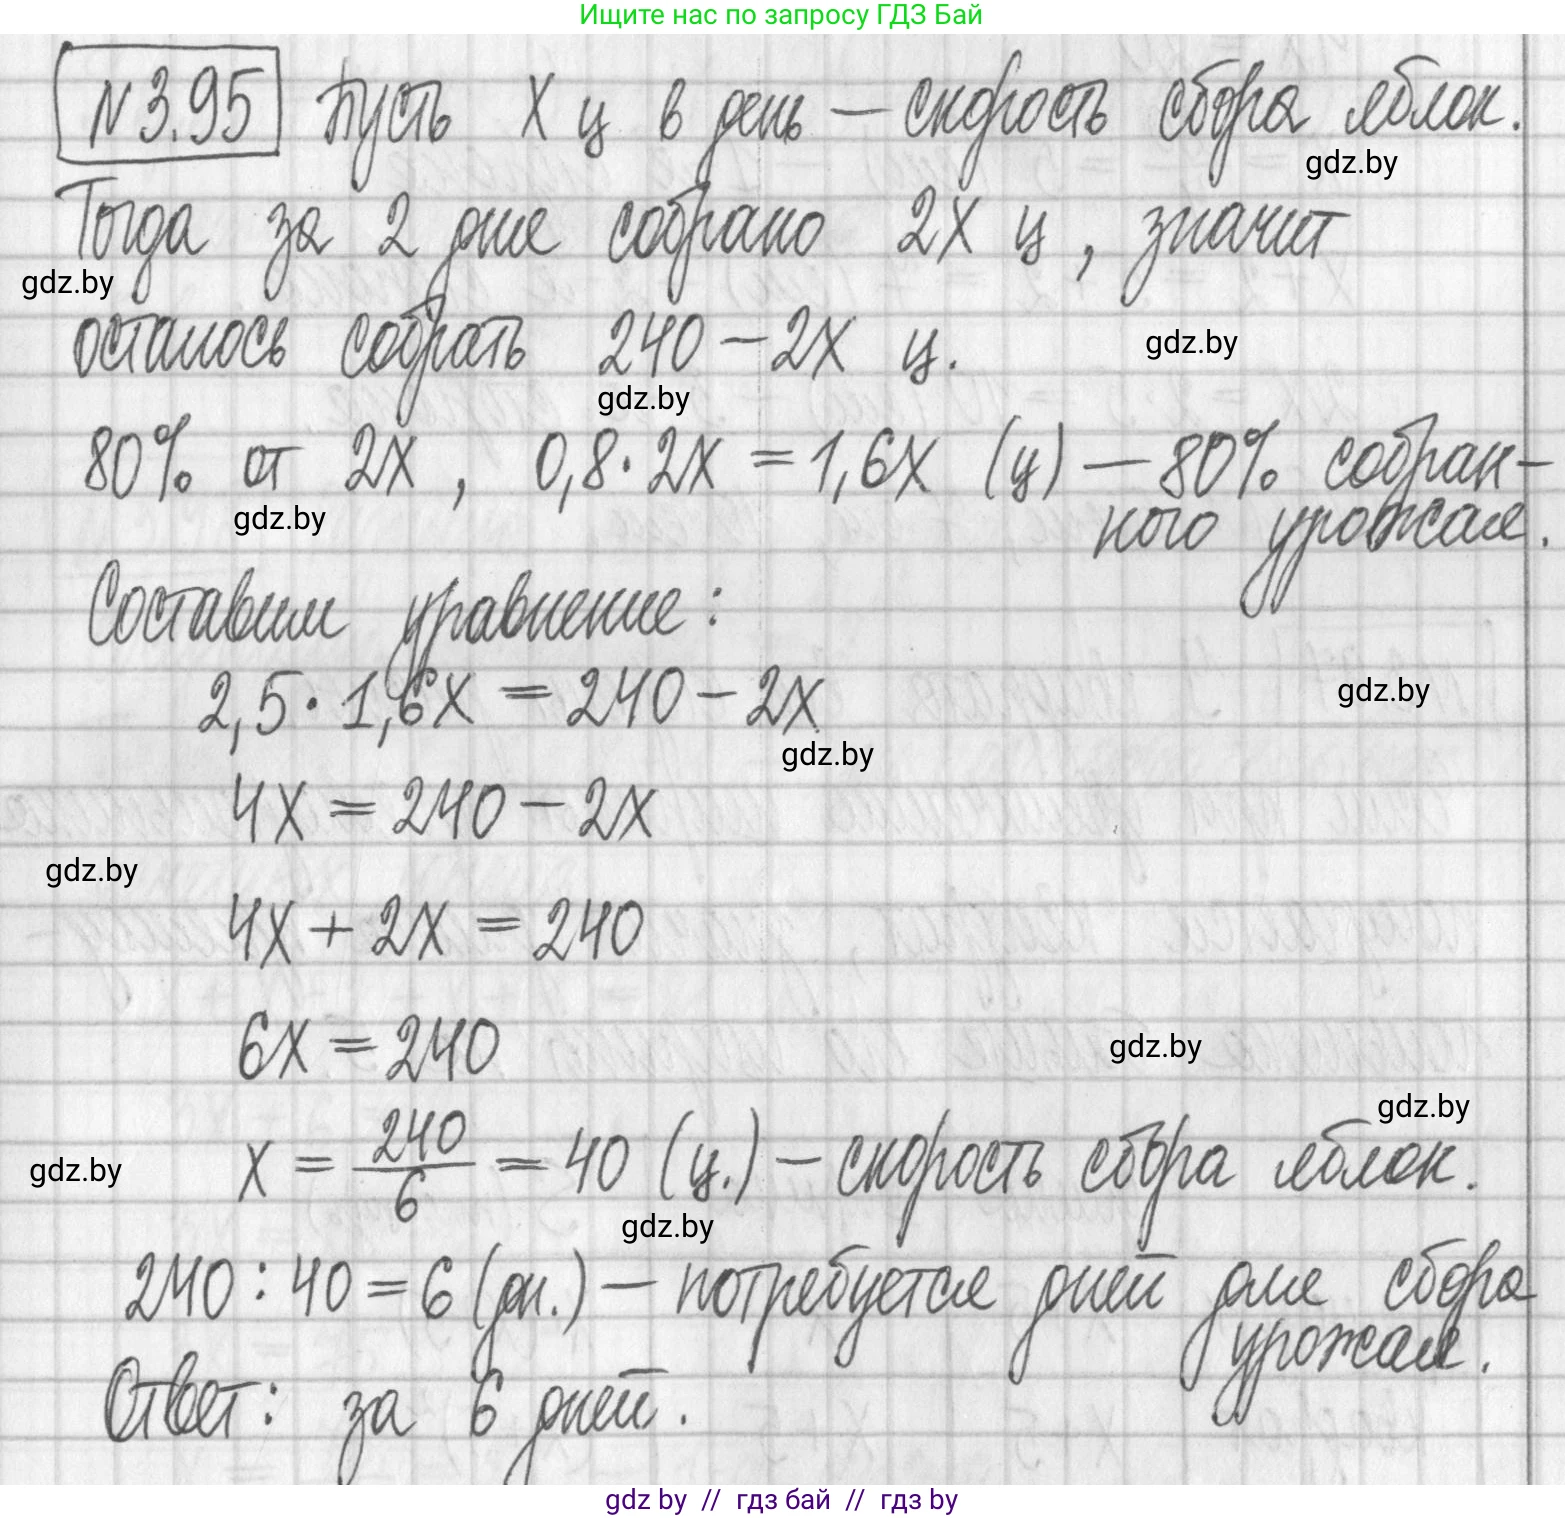 Ищите нас по запросу ГДЗ Бай
N 3.95 Пусть x ц в день – скорость сбора яблок.
gdz.by
Тогда за 2 дня собрано 2x ц, значит
gdz.by
осталось собрать 240 – 2x ц.
gdz.by
gdz.by
80% от 2x, 0,8·2x = 1,6x (ц) – 80% собран-
ного урожая.
gdz.by
Составим уравнение:
2,5·1,6x = 240 – 2x
gdz.by
gdz.by
4x = 240 – 2x
gdz.by
4x + 2x = 240
6x = 240
gdz.by
gdz.by
x = 240/6 = 40 (ц.) – скорость сбора яблок.
gdz.by
gdz.by
240 : 40 = 6 (дн.) – потребуется дней для сбора
урожая.
Ответ: за 6 дней.
gdz by // гдз бай // гдз by